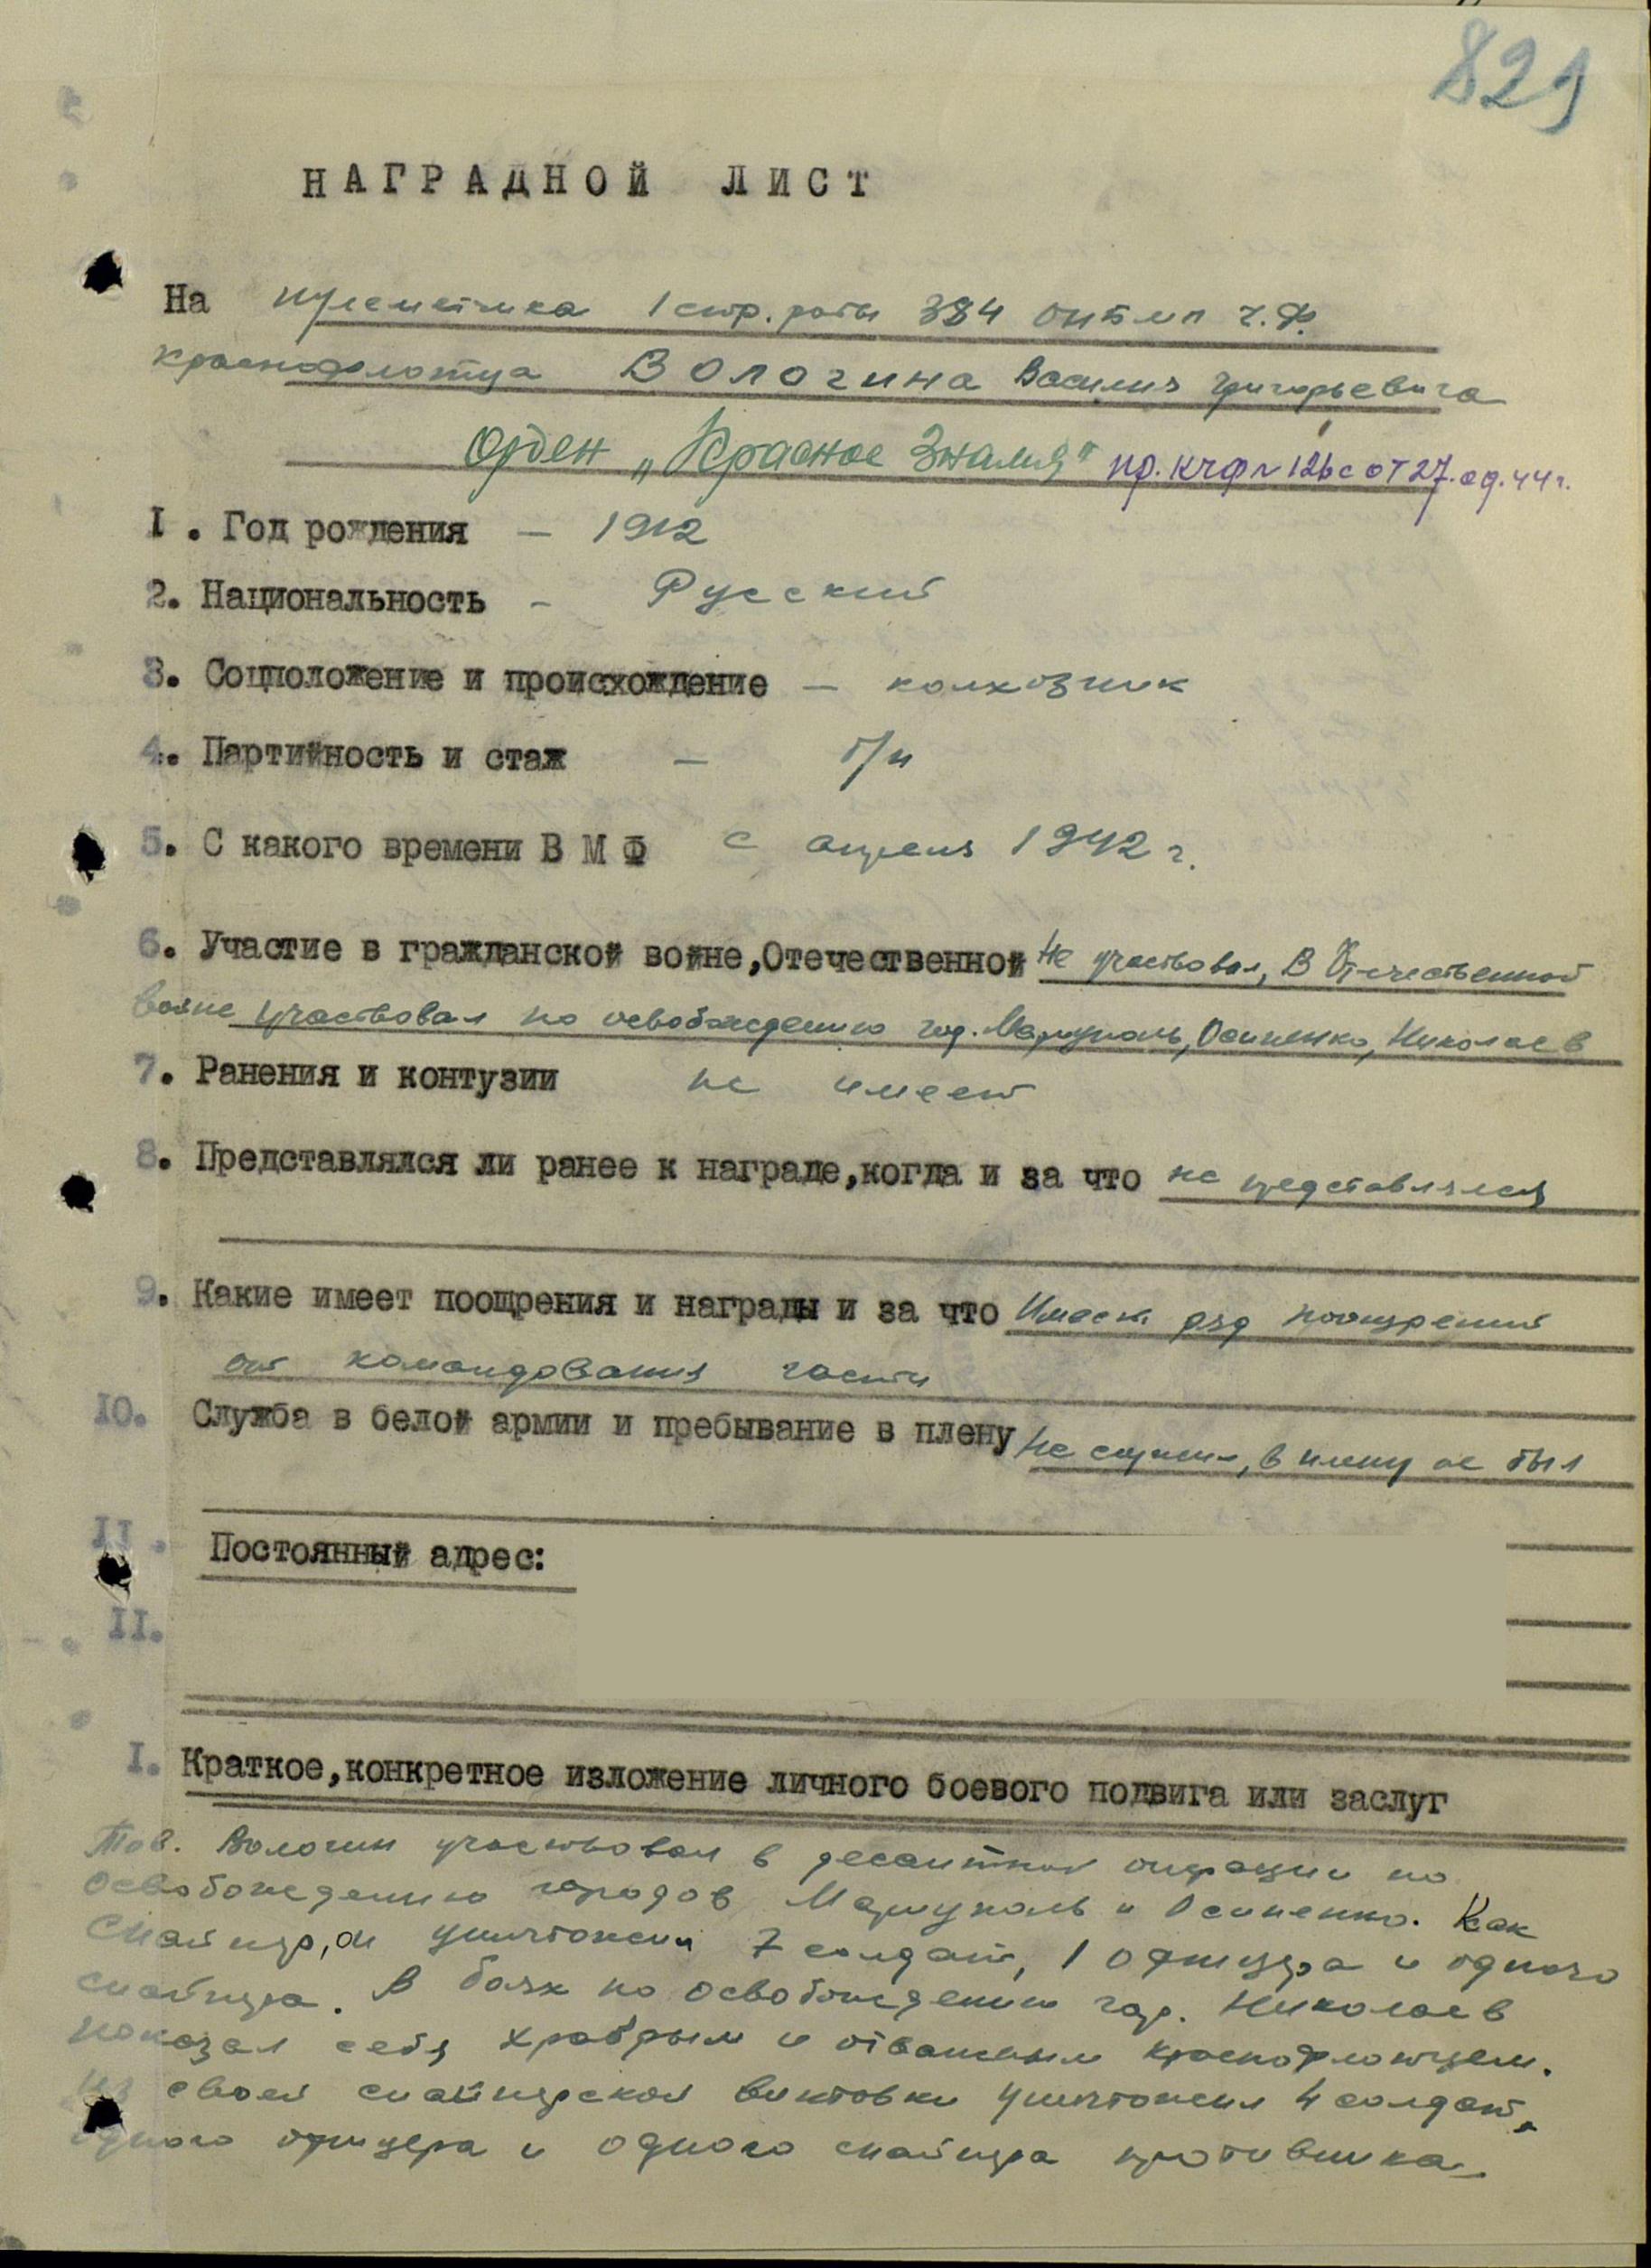 829
НАГРАДНОЙ ЛИСТ
На пулеметчика 1 стр. роты 384 ОНБМП Ч.Ф.
краснофлотца Вологина Василия Григорьевича
Орден „Красное Знамя" пр. КЧФ №12бс от 27.09.44г.
I. Год рождения – 1912
2. Национальность – Русский
3. Соцположение и происхождение – колхозник
4. Партийность и стаж – б/п
5. С какого времени В М Ф с апреля 1942 г.
6. Участие в гражданской войне, Отечественной Не участвовал, В Отечественной
войне участвовал по освобождению гор. Мариуполь, Осипенко, Николаев
7. Ранения и контузии не имеет
8. Представлялся ли ранее к награде, когда и за что не представлялся
9. Какие имеет поощрения и награды и за что Имеет ряд поощрений
от командования части
10. Служба в белой армии и пребывание в плену Не служил, в плену не был
II. Постоянный адрес:
II.
I. Краткое, конкретное изложение личного боевого подвига или заслуг
Тов. Вологин участвовал в десантной операции по
освобождению городов Мариуполь и Осипенко. Как
снайпер, он уничтожил 7 солдат, 1 офицера и одного
снайпера. В боях по освобождению гор. Николаев
показал себя храбрым и отважным краснофлотцем.
Из своей снайперской винтовки уничтожил 4 солдат,
одного офицера и одного снайпера противника.